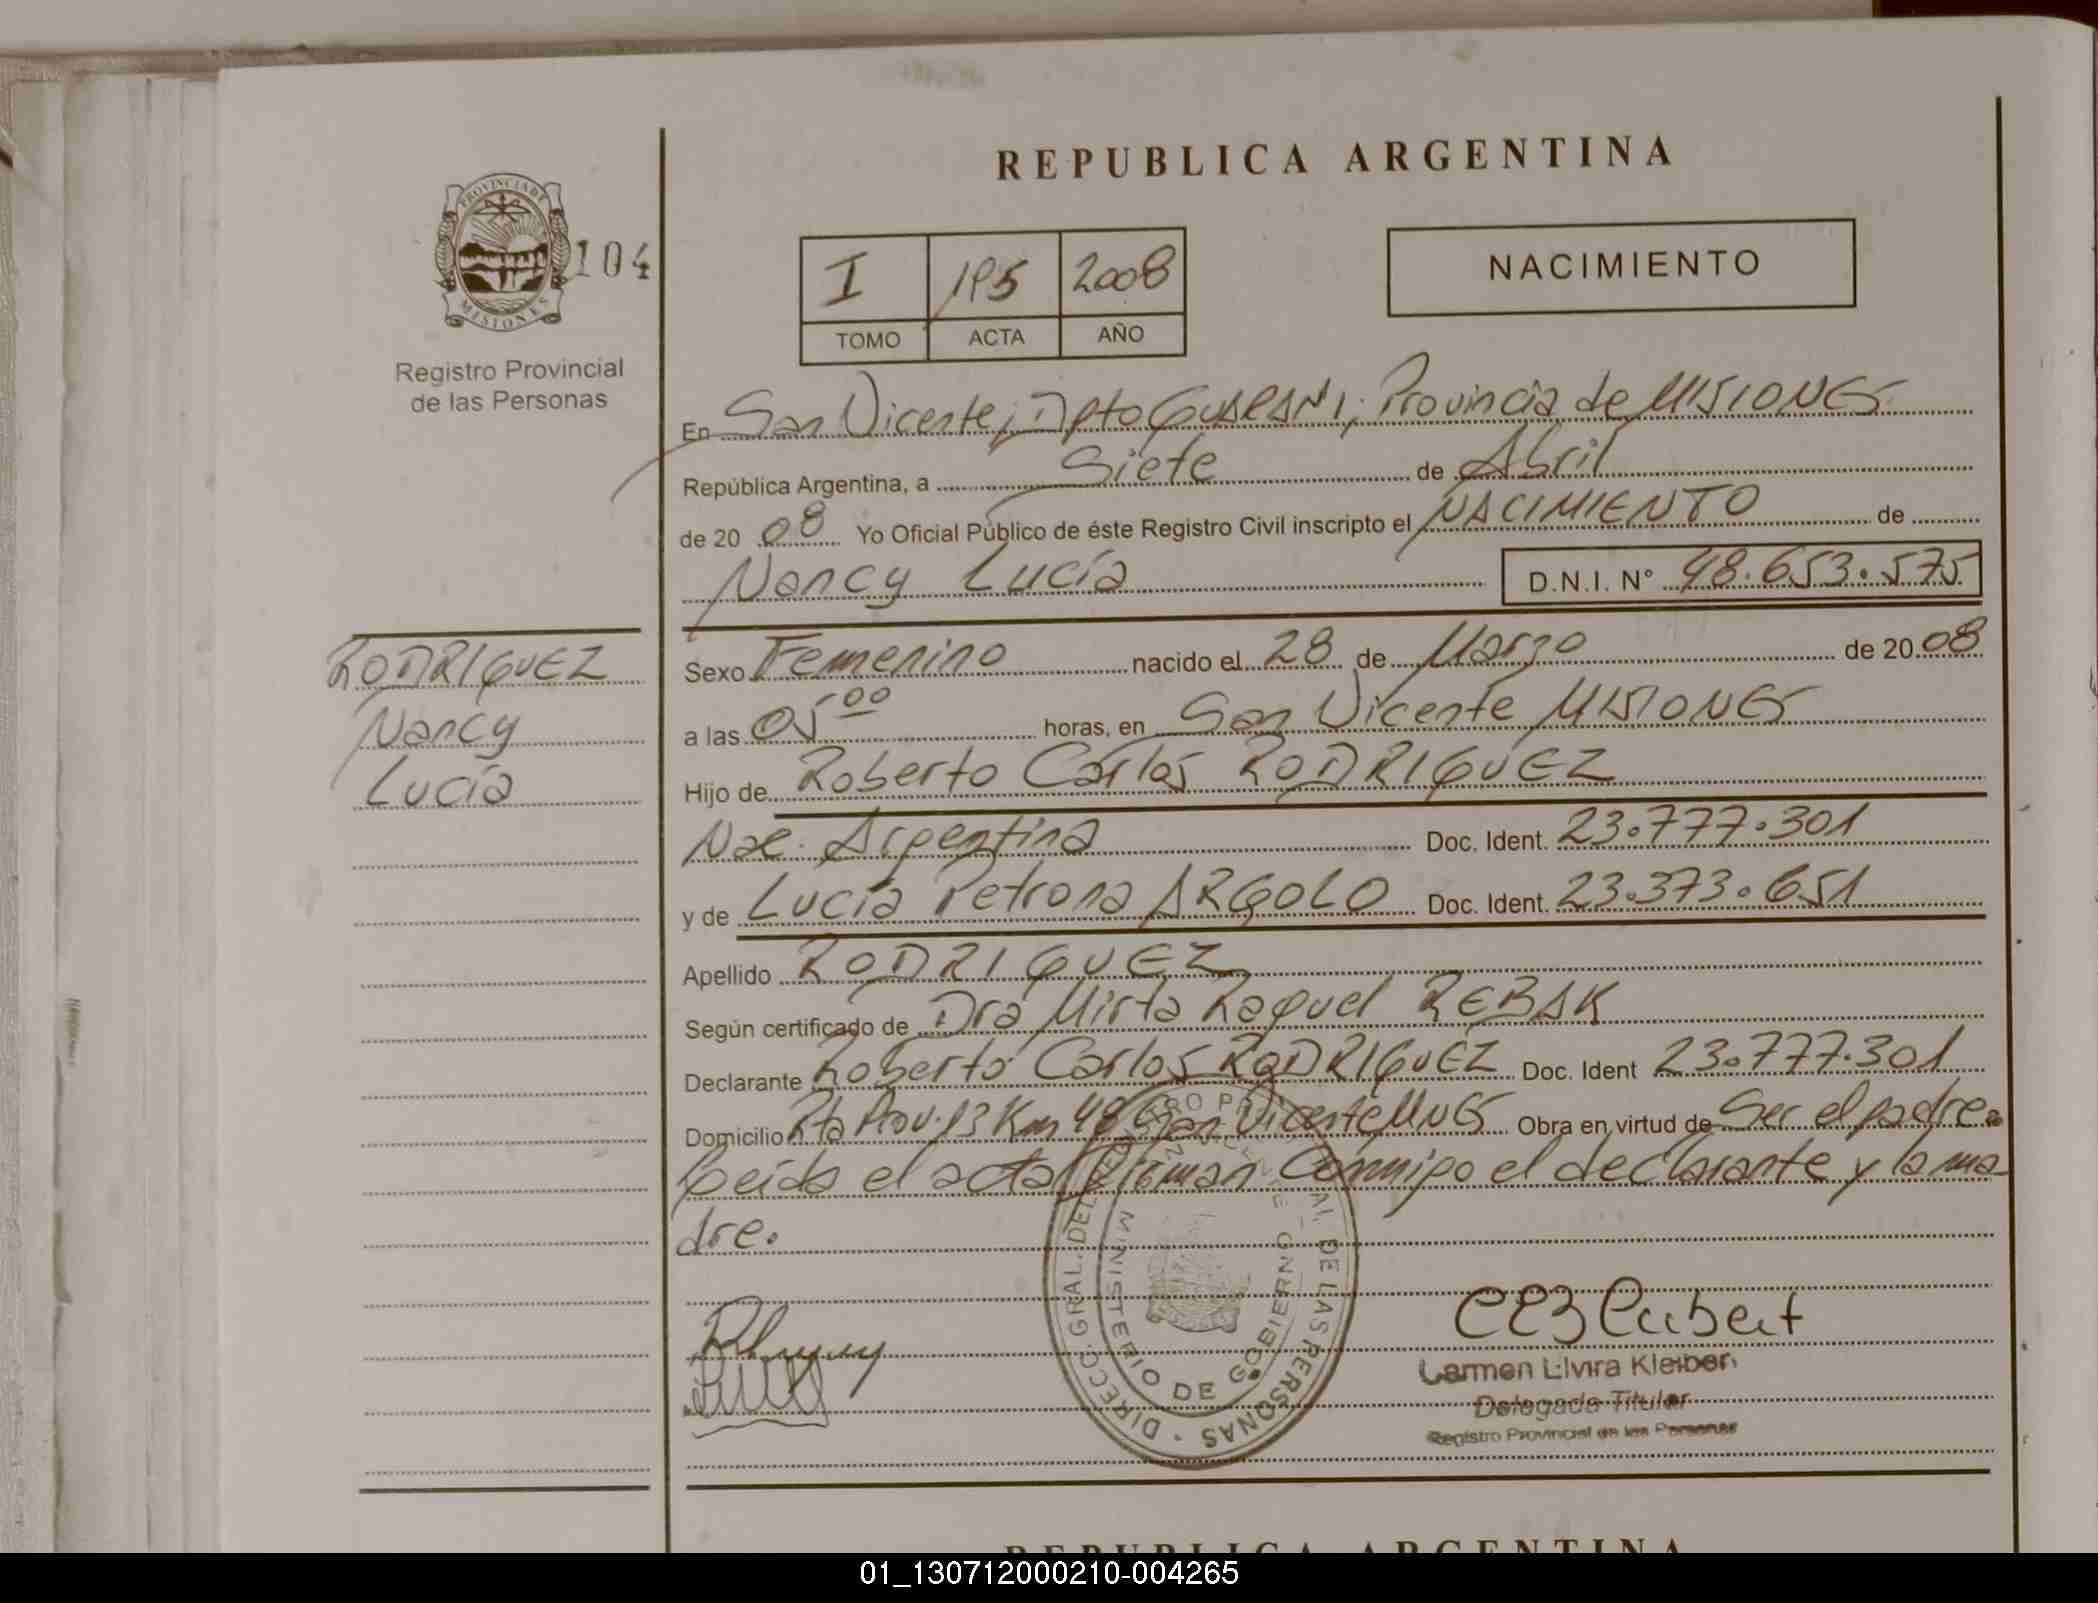 REPUBLICA ARGENTINA
PROVINCIA DE
MISIONES
104
Registro Provincial
de las Personas
I 195 2008
TOMO ACTA AÑO
NACIMIENTO
En San Vicente, Dpto GUARANI, Provincia de MISIONES
República Argentina, a Siete de Abril
de 20 08 Yo Oficial Público de éste Registro Civil inscripto el NACIMIENTO de
Nancy Lucía D.N.I. N° 48.653.575
RODRIGUEZ
Nancy
Lucía
Sexo Femenino nacido el 28 de Marzo de 20 08
a las 05 00 horas, en San Vicente MISIONES
Hijo de Roberto Carlos RODRIGUEZ
Nac. Argentina Doc. Ident. 23.777.301
y de Lucía Petrona ARGOLO Doc. Ident. 23.373.651
Apellido RODRIGUEZ
Según certificado de Dra Mirta Raquel REBAK
Declarante Roberto Carlos RODRIGUEZ Doc. Ident 23.777.301
Domicilio Rta Prov. 13 Km 48 San Vicente MNES Obra en virtud de Ser el padre.
Leída el acta Firman Conmigo el declarante y la ma-
dre.
DIRECC. GRAL. DEL REGISTRO PROVINCIAL DE LAS PERSONAS
MINISTERIO DE GOBIERNO
Carmen Elvira Kleiber
Delegada Titular
Registro Provincial de las Personas
REPUBLICA ARGENTINA
01_130712000210-004265